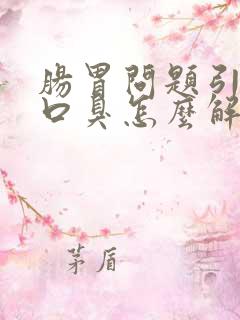 腸胃問題引
口臭怎麼解
茅盾